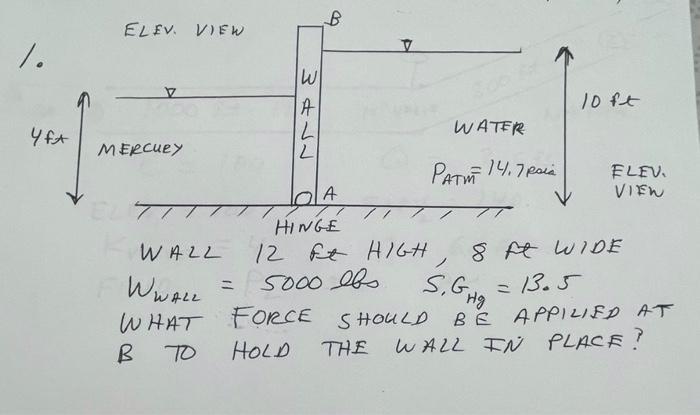 ELEV. VIEW
B
1.
WALL
10 ft
4 ft
MERCURY
WATER
PATM = 14.7 psia
ELEV.
VIEW
A
HINGE
WALL 12 ft HIGH, 8 ft WIDE
WWALL = 5000 lbs S.GHg = 13.5
WHAT FORCE SHOULD BE APPILIED AT
B TO HOLD THE WALL IN PLACE?